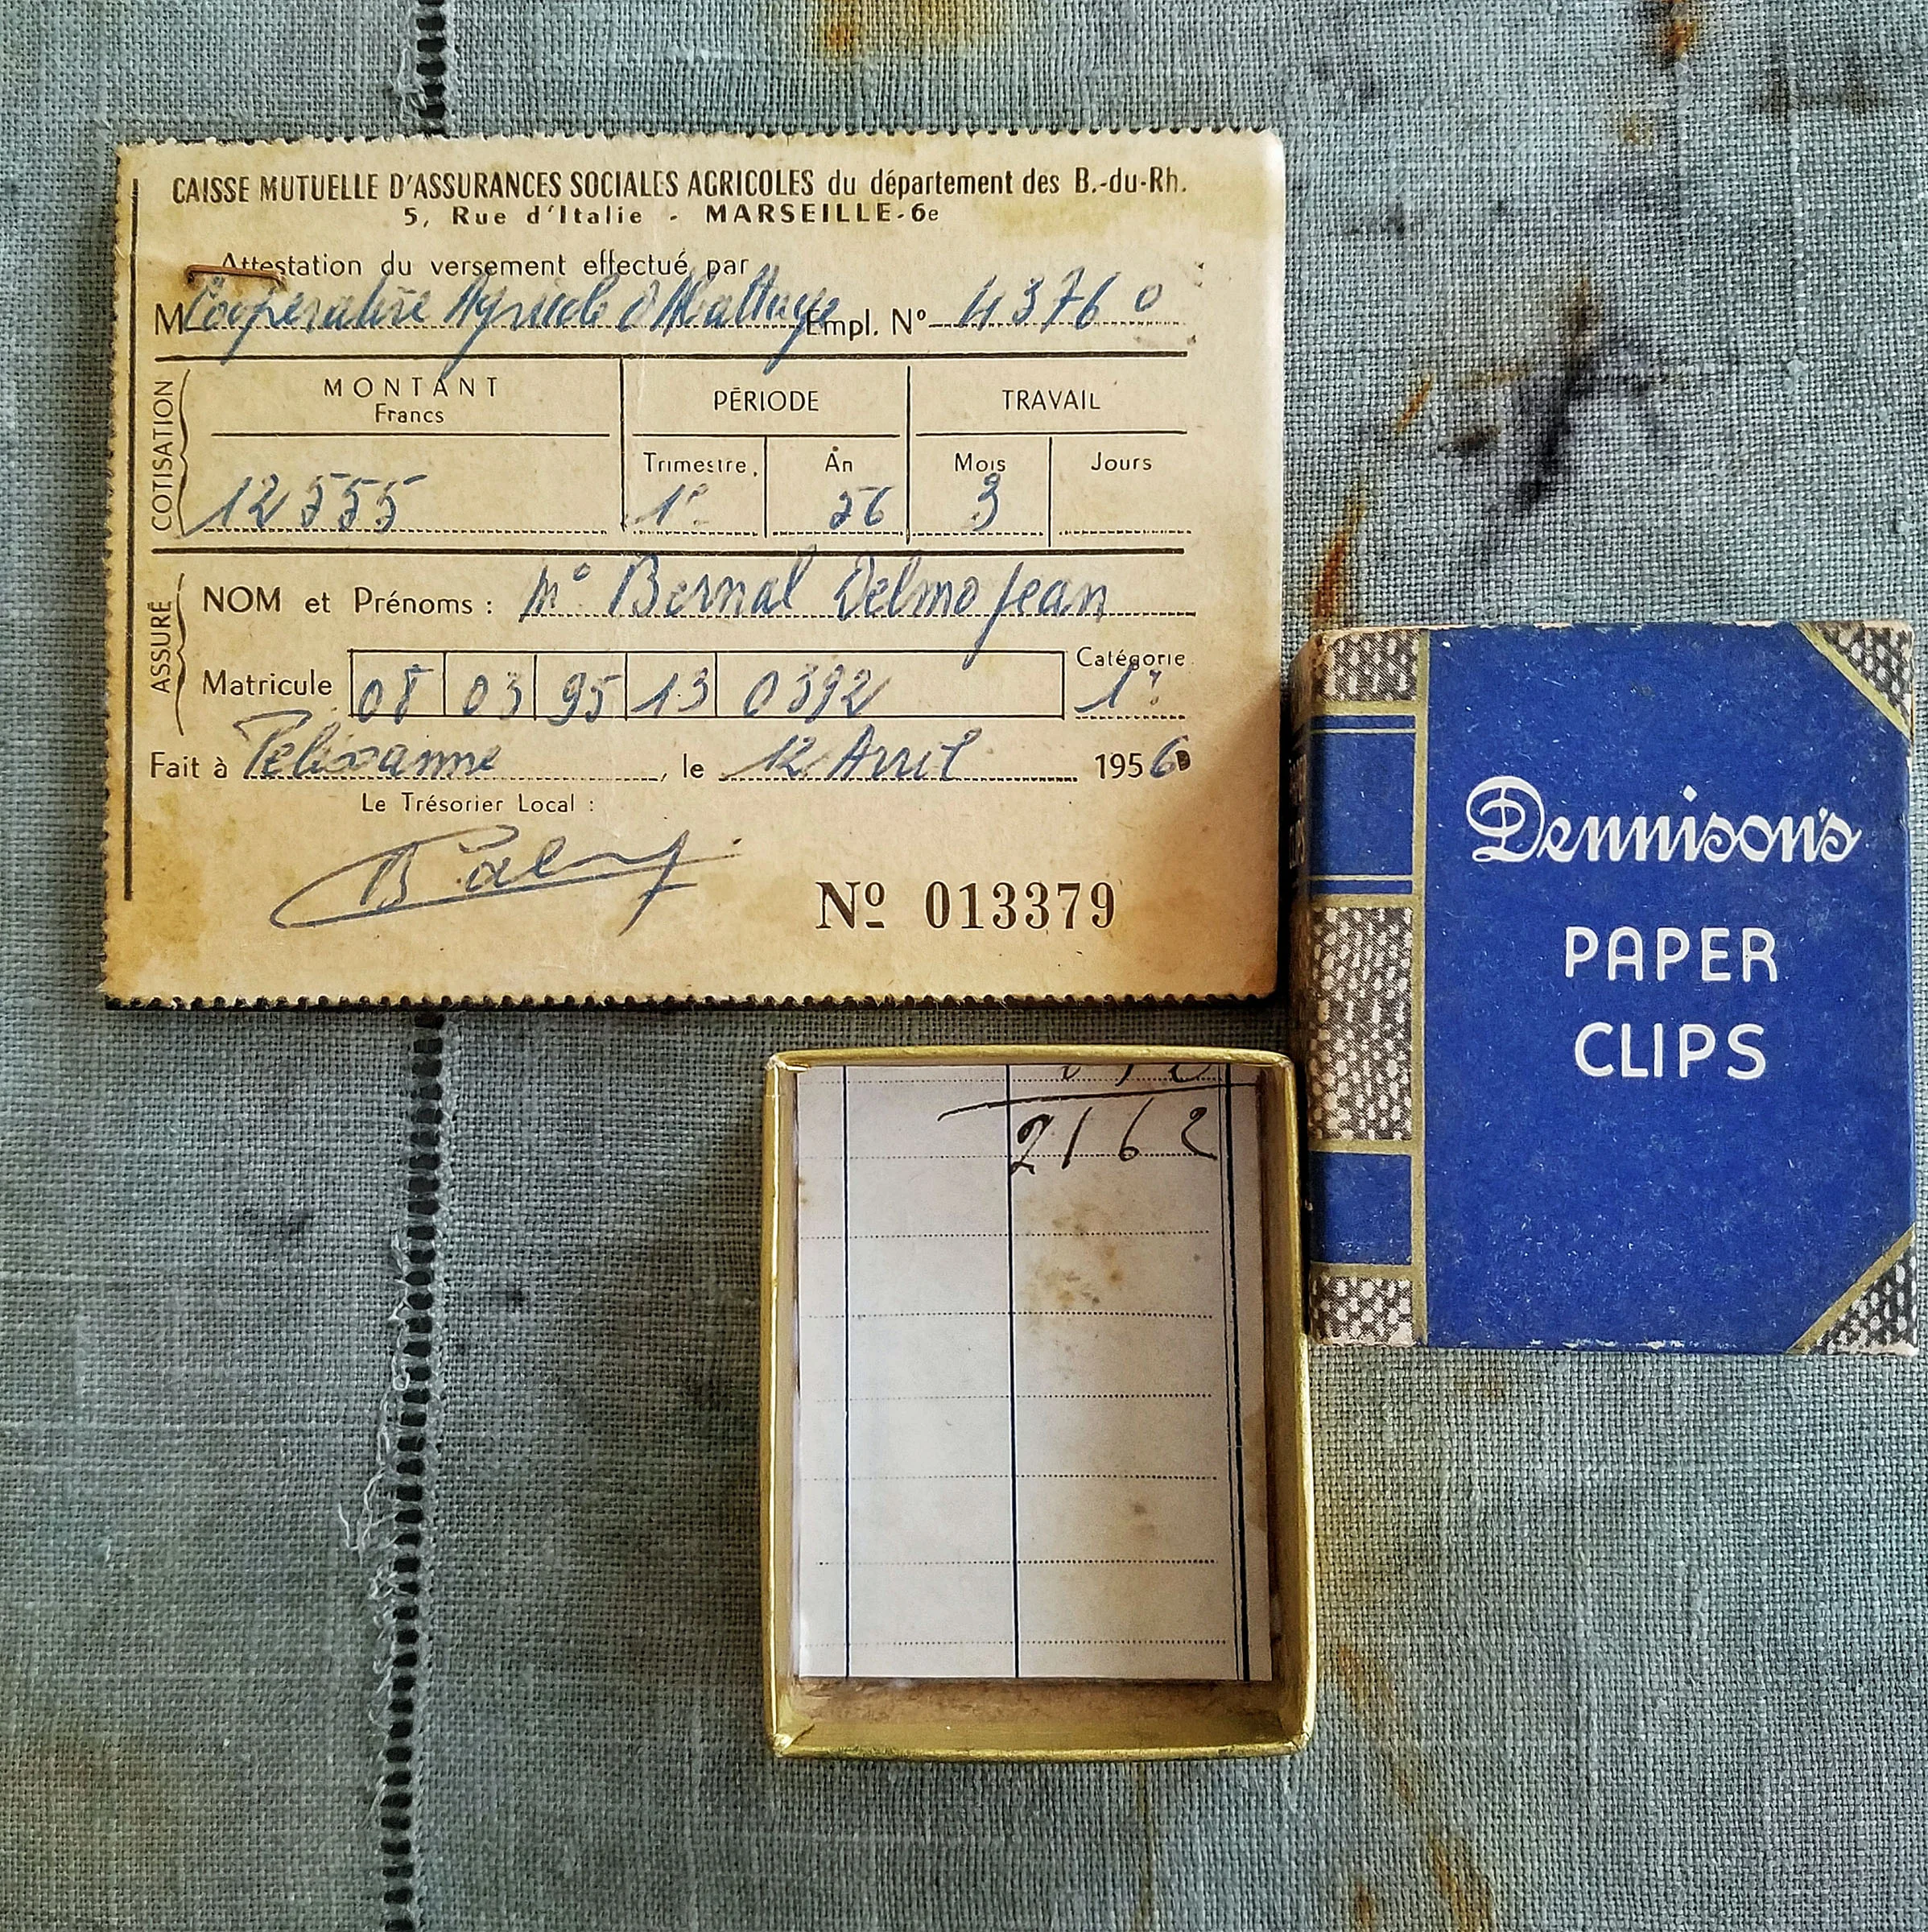 CAISSE MUTUELLE D'ASSURANCES SOCIALES AGRICOLES du département des B.-du-Rh.
5, Rue d'Italie - MARSEILLE-6e
Attestation du versement effectué par
M Coopérative Agricole d'Abattage Empl. Nº 43760
COTISATION
MONTANT PÉRIODE TRAVAIL
Francs
Trimestre, An Mois Jours
12555 1º 56 3
ASSURÉ
NOM et Prénoms : Mº Bernal Delmo Jean
Matricule 08 03 95 13 0392 Catégorie 1º
Fait à Pelissanne, le 12 Avril 1956
Le Trésorier Local :
Nº 013379
Dennison's
PAPER
CLIPS
2162